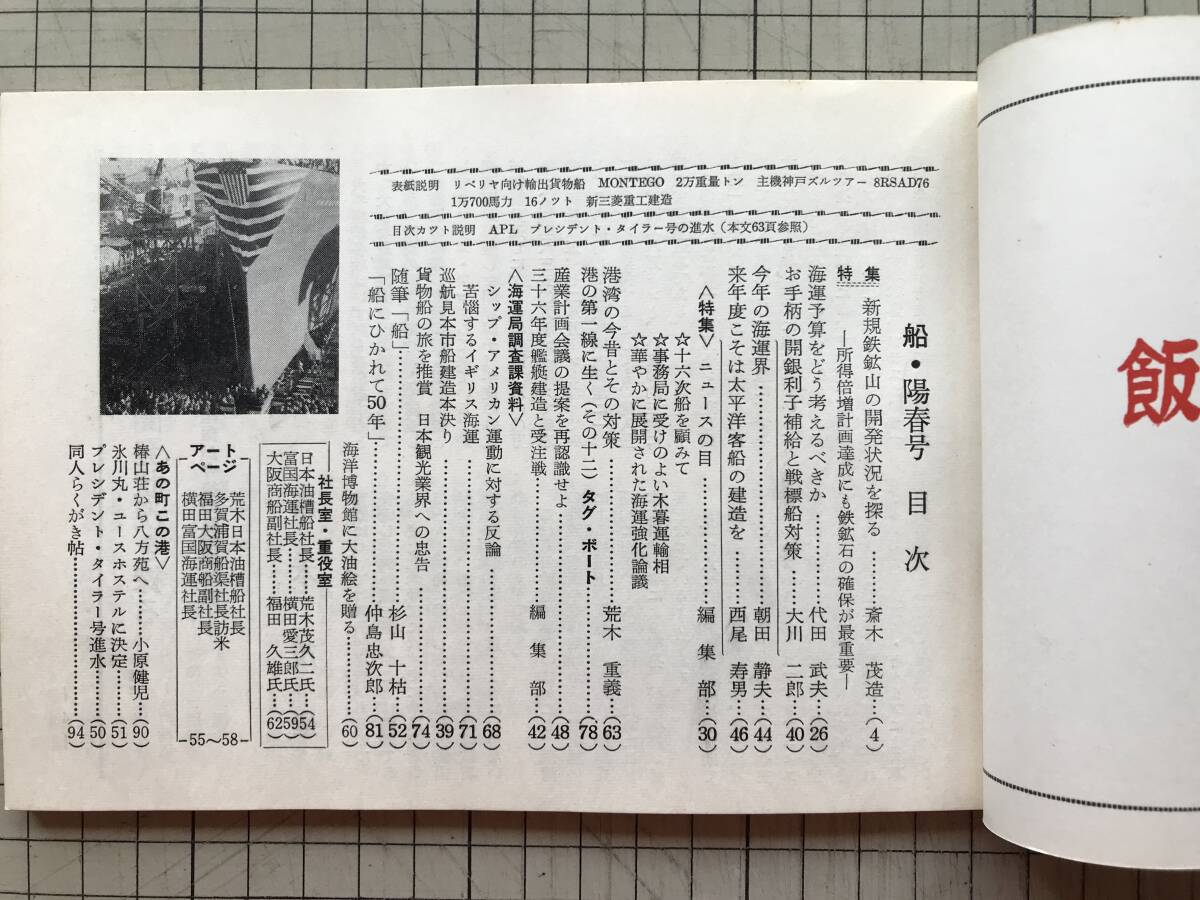 表紙説明 リベリヤ向け輸出貨物船 MONTEGO 2万重量トン 主機神戸ズルツアー 8RSAD76
1万700馬力 16ノツト 新三菱重工建造
目次カツト説明 APL プレシデント・タイラー号の進水(本文63頁参照)
船・陽春号 目次
特集 新規鉄鉱山の開発状況を探る………斎木 茂造…(4)
―所得倍増計画達成にも鉄鉱石の確保が最重要―
海運予算をどう考えるべきか………代田 武夫…(26)
お手柄の開銀利子補給と戦標船対策………大川 二郎…(40)
今年の海運界………朝田 静夫…(44)
来年度こそは太平洋客船の建造を………西尾 寿男…(46)
〈特集〉 ニュースの目………編集部…(30)
☆十六次船を顧みて
☆事務局に受けのよい木暮運輸相
☆華やかに展開された海運強化論議
港湾の今昔とその対策………荒木 重義…(63)
港の第一線に生く(その十二) タグ・ボート………(78)
産業計画会議の提案を再認識せよ………(48)
三十六年度艦艇建造と受注戦………編集部…(42)
〈海運局調査課資料〉
シップ・アメリカン運動に対する反論………(68)
苦悩するイギリス海運………(71)
巡航見本市船建造本決り………(39)
貨物船の旅を推賞 日本観光業界への忠告………(74)
随筆「船」………杉山 十枯…(52)
「船にひかれて50年」………仲島忠次郎…(81)
海洋博物館に大油絵を贈る………(60)
社長室・重役室
日本油槽船社長……荒木茂久二氏…(54)
富国海運社長……横田愛三郎氏…(59)
大阪商船副社長……福田 久雄氏…(62)
アートページ
荒木日本油槽船社長
多賀浦賀船渠社長訪米
福田大阪商船副社長
横田富国海運社長
―55～58―
〈あの町この港〉
椿山荘から八方苑へ………小原健児…(90)
氷川丸・ユースホステルに決定………(51)
プレシデント・タイラー号進水………(50)
同人らくがき帖………(94)
飯